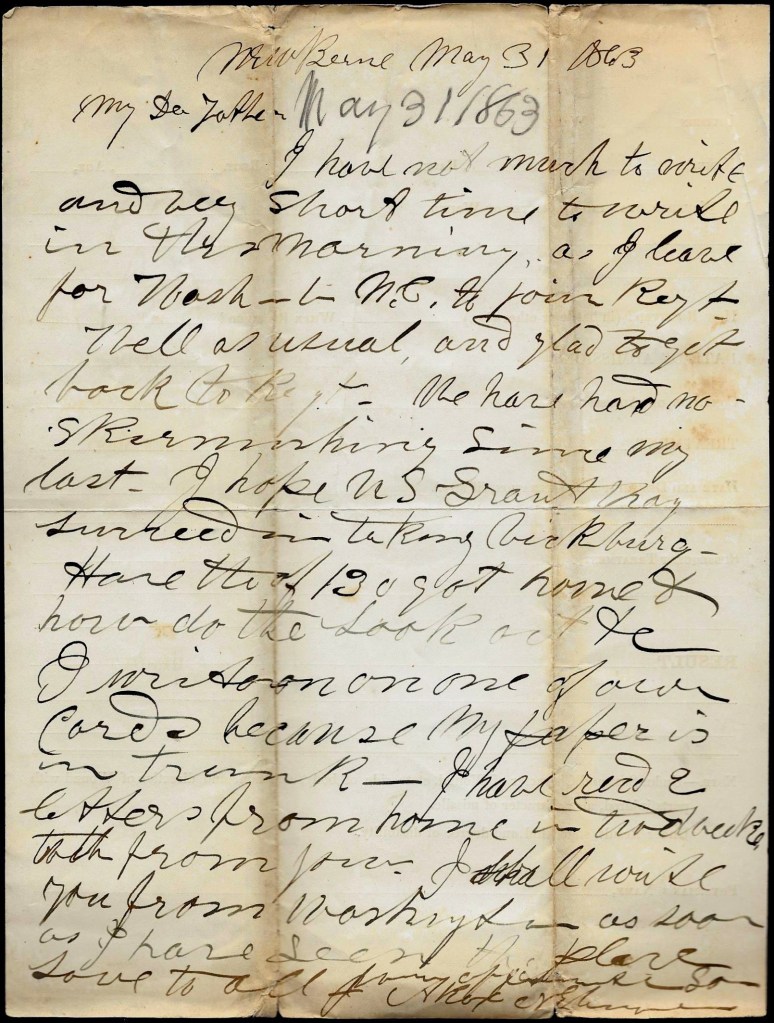 New Berne May 31 1863
My De Father May 31 1863
I have not much to write
and very short time to write
in this morning, as I leave
for Wash-tn N.C. to join Regt
Well as usual, and glad to get
back to Regt - We have had no
skirmishing since my
last - I hope US Grant may
succeed in taking Vicksburg -
Have the of 130 got home &
how do the look out &c
I write on one of our
Cards because my paper is
in trunk - I have recd 2
letters from home in two weeks
both from you. I shall write
you from Washington as soon
as I have seen the place
Love to all Your affectionate Son